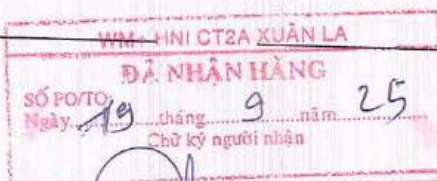 WM+ HNI CT2A XUÂN LA
ĐÃ NHẬN HÀNG
SỐ PO/TO:
Ngày 19 tháng 9 năm 25
Chữ ký người nhận